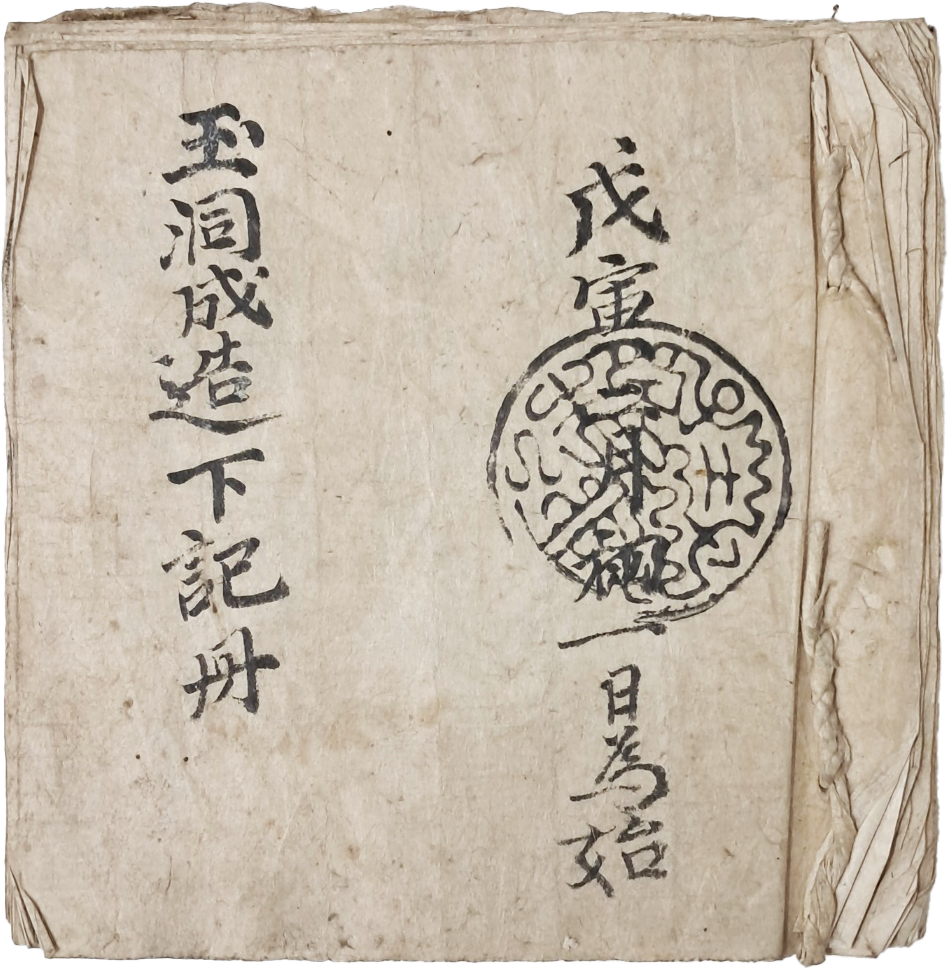 戊寅二月初一日為始
玉洞成造下記冊